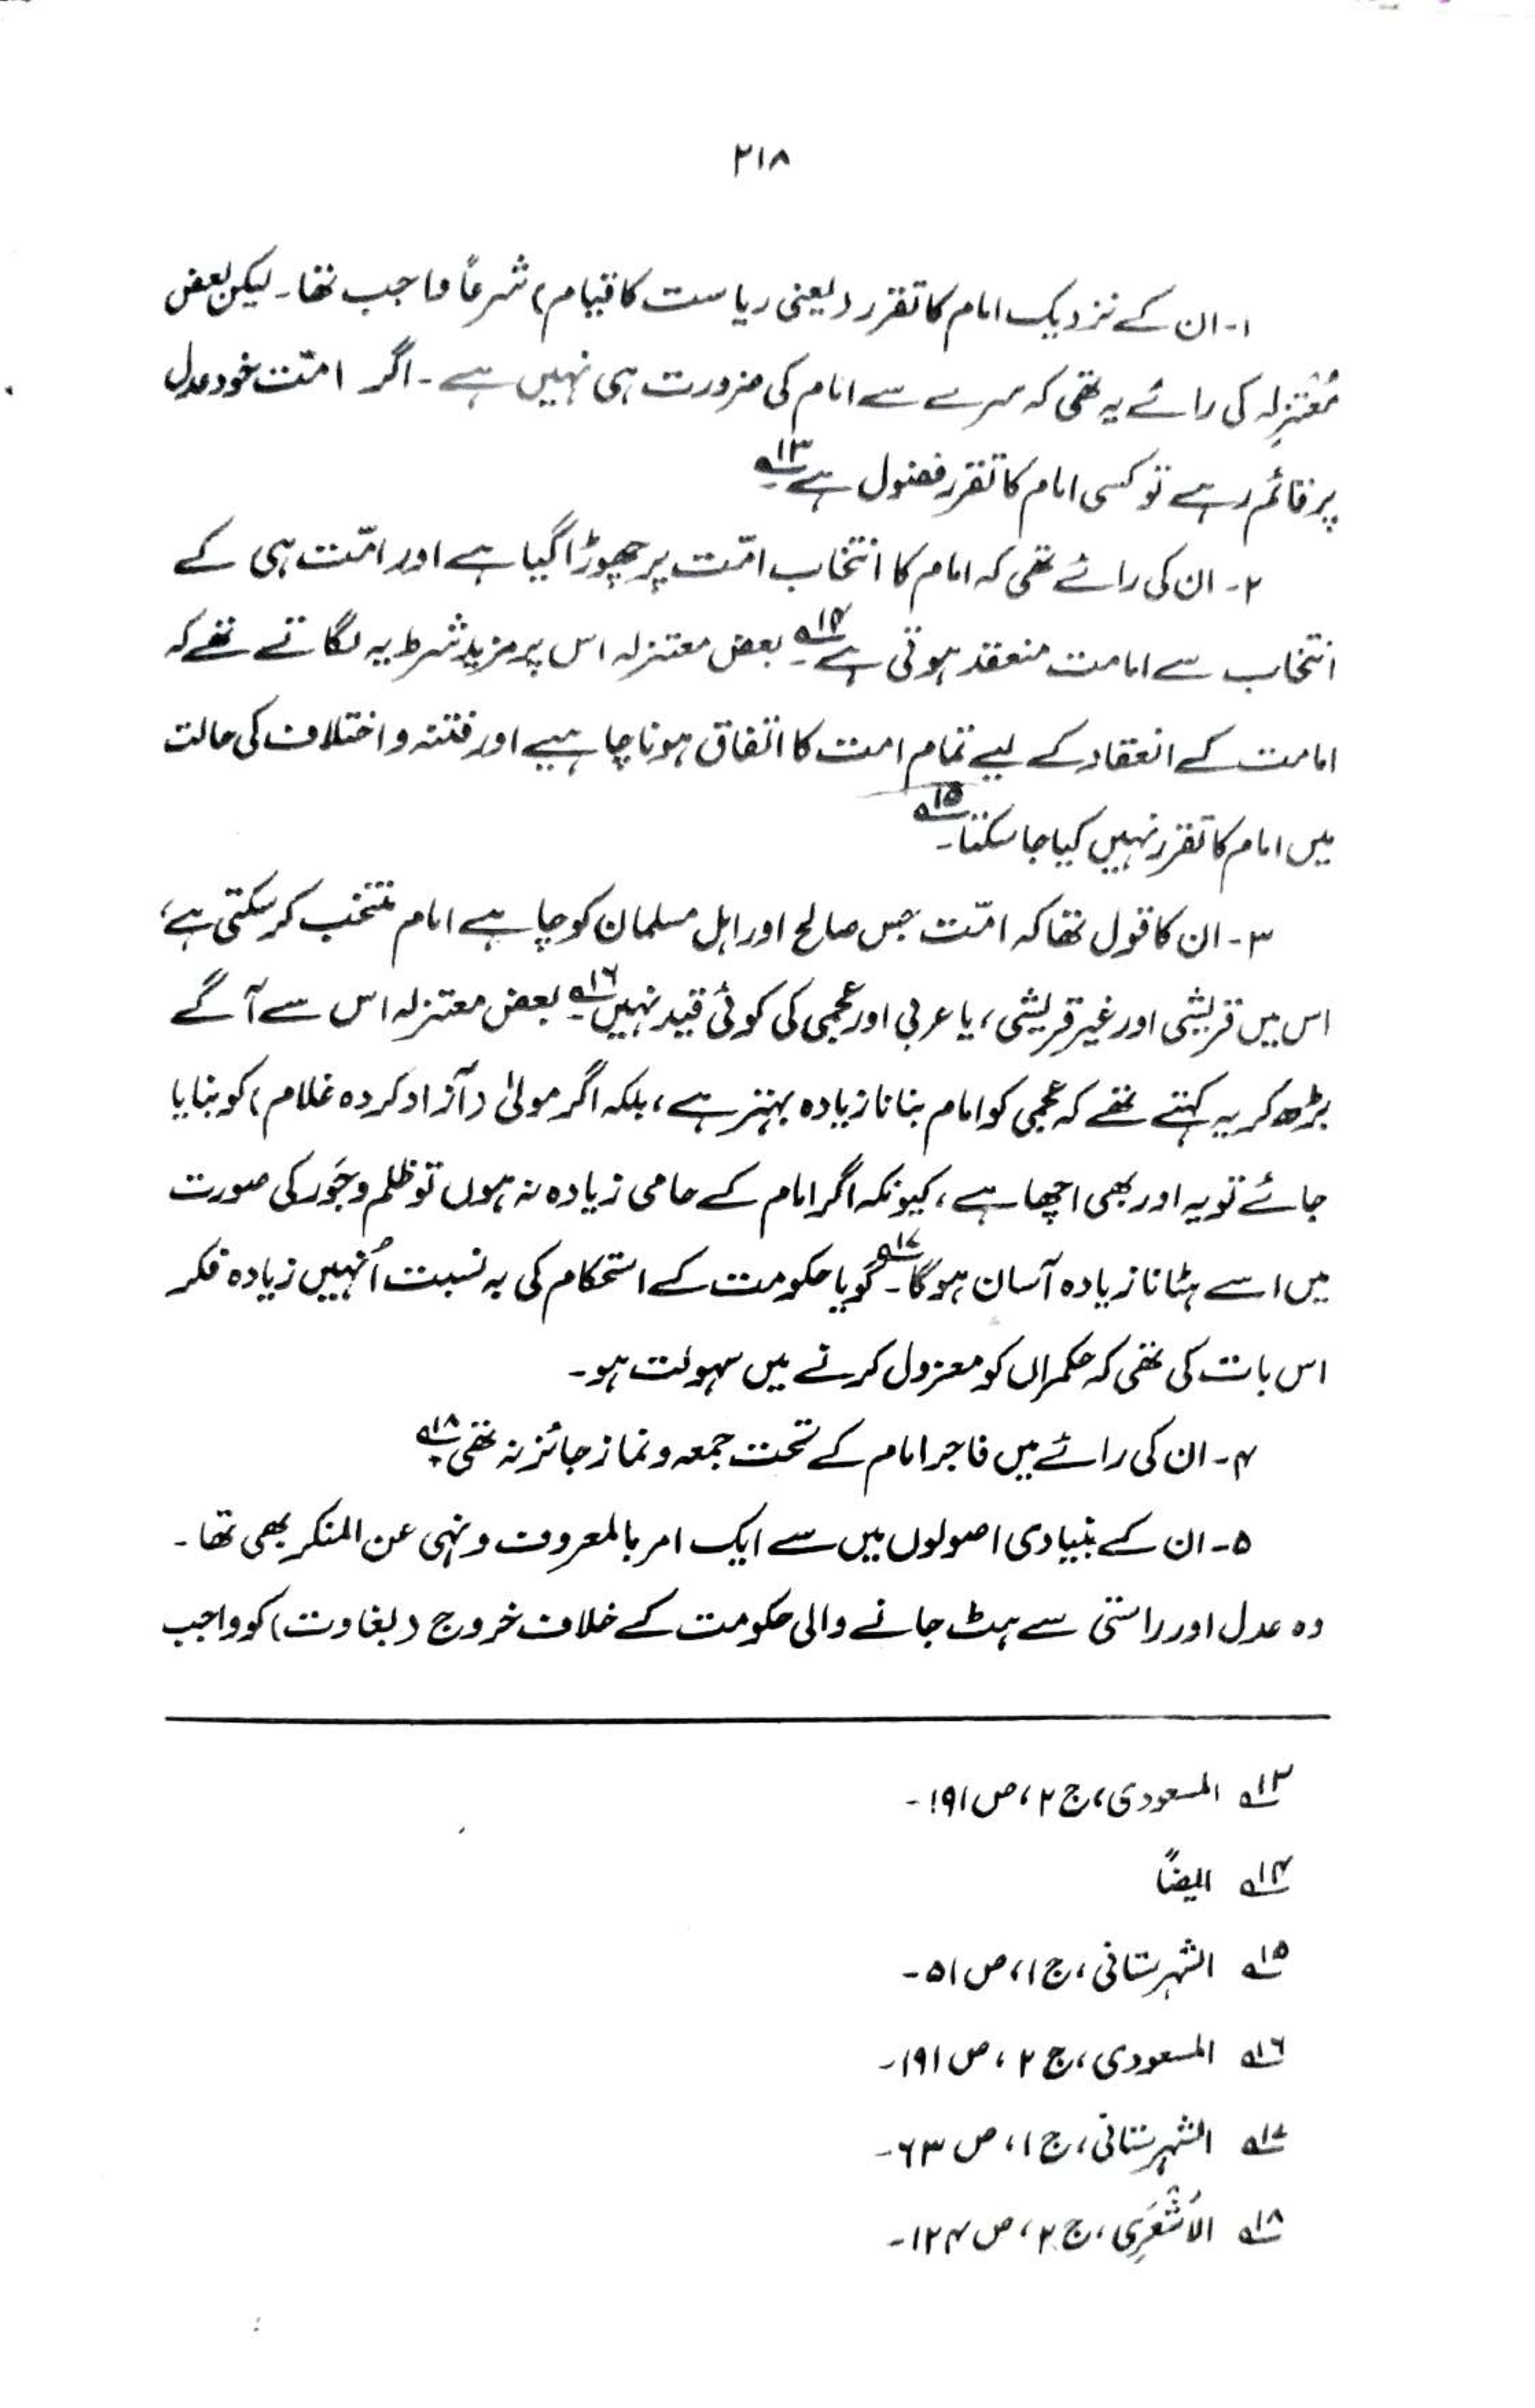 ۲۱۸
۱- ان کے نزدیک امام کا تقرر (یعنی ریاست کا قیام) شرعاً واجب تھا۔ لیکن بعض
مُعْتزِلہ کی رائے یہ تھی کہ سرے سے امام کی ضرورت ہی نہیں ہے۔ اگر امّت خود عدل
پر قائم رہے تو کسی امام کا تقرر فضول ہے۔ ۱۳؎
۲- ان کی رائے تھی کہ امام کا انتخاب امّت پر چھوڑا گیا ہے اور امّت ہی کے
انتخاب سے امامت منعقد ہوتی ہے۔ ۱۴؎ بعض معتزلہ اس پر مزید شرط یہ لگاتے تھے کہ
امامت کے انعقاد کے لیے تمام امت کا اتفاق ہونا چاہیے اور فتنہ و اختلاف کی حالت
میں امام کا تقرر نہیں کیا جا سکتا۔ ۱۵؎
۳- ان کا قول تھا کہ امّت جس صالح اور اہل مسلمان کو چاہے امام منتخب کر سکتی ہے،
اس میں قریشی اور غیر قریشی، یا عربی اور عجمی کی کوئی قید نہیں۔ ۱۶؎ بعض معتزلہ اس سے آگے
بڑھ کر یہ کہتے تھے کہ عجمی کو امام بنانا زیادہ بہتر ہے، بلکہ اگر مولیٰ (آزاد کردہ غلام) کو بنایا
جائے تو یہ اور بھی اچھا ہے، کیونکہ اگر امام کے حامی زیادہ نہ ہوں تو ظلم و جَور کی صورت
میں اسے ہٹانا زیادہ آسان ہوگا۔ ۱۷؎ گویا حکومت کے استحکام کی بہ نسبت اُنہیں زیادہ فکر
اس بات کی تھی کہ حکمراں کو معزول کرنے میں سہولت ہو۔
۴- ان کی رائے میں فاجر امام کے تحت جمعہ و نماز جائز نہ تھی۔ ۱۸؎
۵- ان کے بنیادی اصولوں میں سے ایک امر بالمعروف و نہی عن المنکر بھی تھا۔
وہ عدل اور راستی سے ہٹ جانے والی حکومت کے خلاف خروج (بغاوت) کو واجب
۱۳؎ المسعودی، ج ۲، ص ۱۹۱۔
۱۴؎ ایضاً
۱۵؎ الشہرستانی، ج ۱، ص ۵۱۔
۱۶؎ المسعودی، ج ۲، ص ۱۹۱۔
۱۷؎ الشہرستانی، ج ۱، ص ۶۳۔
۱۸؎ الاَشْعَرِی، ج ۲، ص ۱۲۴۔